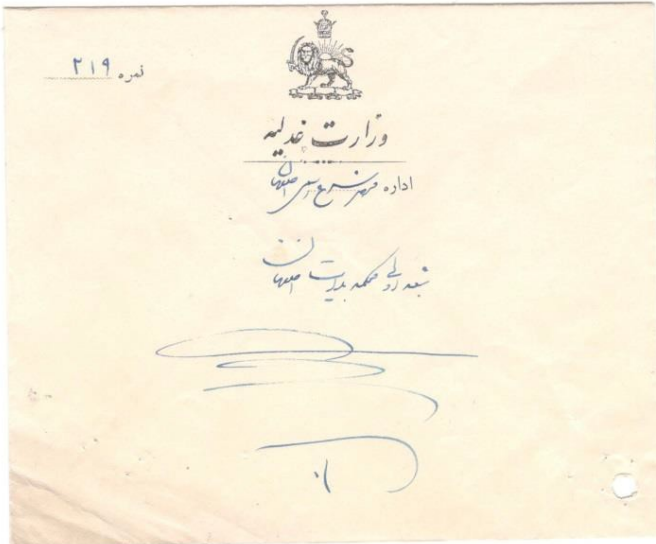 نمره ۲۱۹
وزارت عدلیه
اداره اصفهان
شعبه اول محکمه بدایت اصفهان